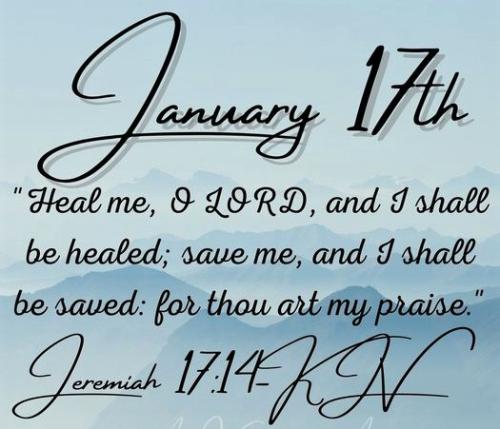 January 17th
"Heal me, O LORD, and I shall
be healed; save me, and I shall
be saved: for thou art my praise."
Jeremiah 17:14-KJV